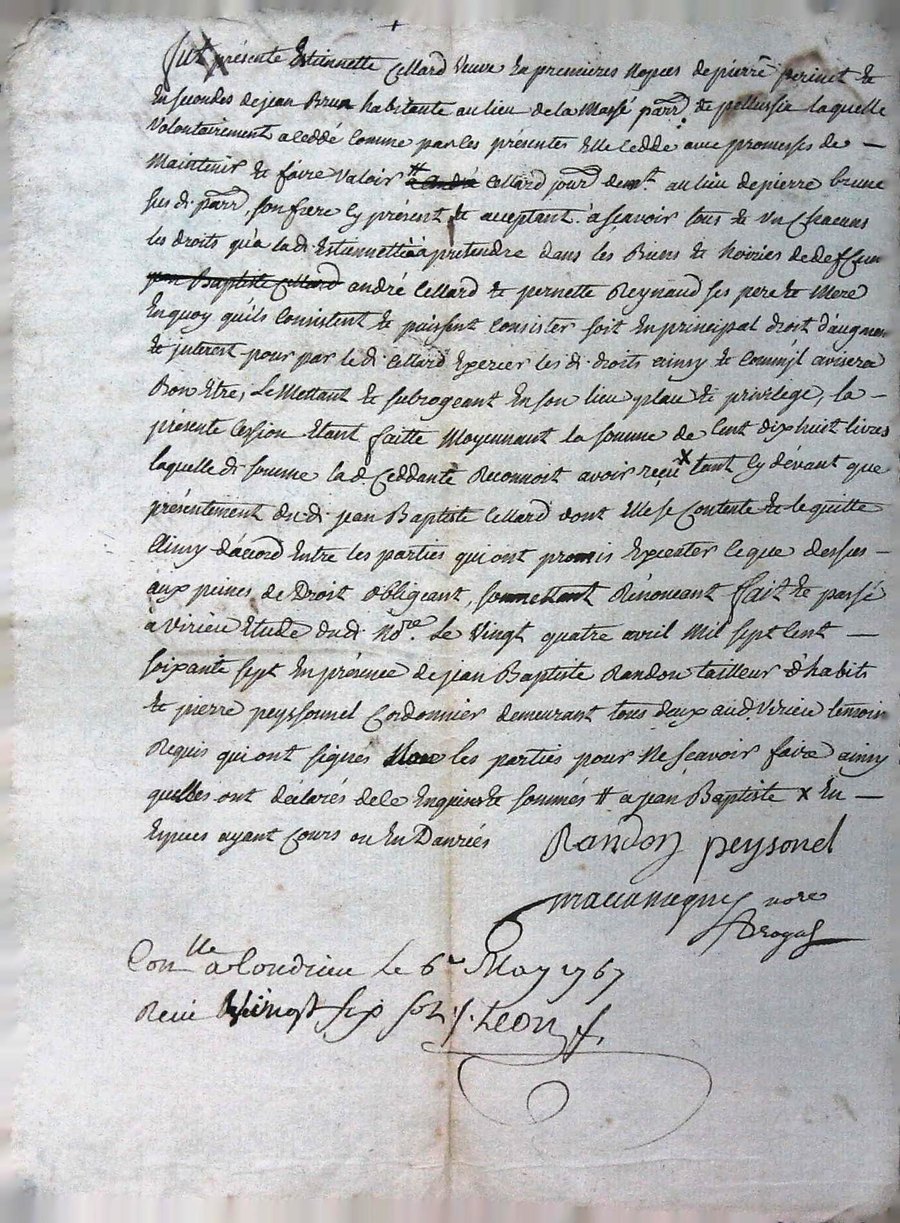 Fut présente Estiennette Cellard veuve en premieres nopces de pierre perinet et
en secondes de jean Brun habitante au lieu de la Massé parr. de pellussin laquelle
volontairement a ceddé comme par les présentes elle cedde avec promesses de —
maintenir et faire valoir # a andré Cellard jourr. demt. au lieu de pierre brune
sus d. parr, son frere cy présent et aceptant a sçavoir tous et un chacuns
les droits qu'a la d. Estiennette a pretendre dans les Biens et hoiries de deffun
jean Baptiste Cellard andré Cellard et pernette Reynaud ses pere et mere
en quoy qu'ils consistent et puissent consister soit en principal droit d'augmen
et interest pour par le d. Cellard exercer les d. droits ainsy et comm'jl avisera
Bon etre, le mettant et subrogeant en son lieu place et privilege, la —
présente cession etant faitte moyennant la somme de cent dix huit livres
laquelle d. somme la d. ceddante reconnoit avoir reçu x tant cy dévant que
présentement du d. jean Baptiste Cellard dont elle se contente et le quitte
ainsy d'acord entre les parties qui ont promis executer ce que dessus —
aux peines de Droit obligeant, soumettant rénonceant fait et passé
a virieu etude du d. nore. le vingt quatre avril mil sept cent —
soixante sept en présence de jean Baptiste Randon tailleur d'habits
et pierre peyssonnel cordonnier demeurant tous deux aud. virieu temoin
requis qui ont signes non les parties pour ne sçavoir faire ainsy
quelles ont declarés de ce enquises et sommés # a jean Baptiste x en —
especes ayant cours ou en Danrées
Randon peysonel
nore
Conlle a Condrieu le 6e May 1767
Reçu vingt six sols